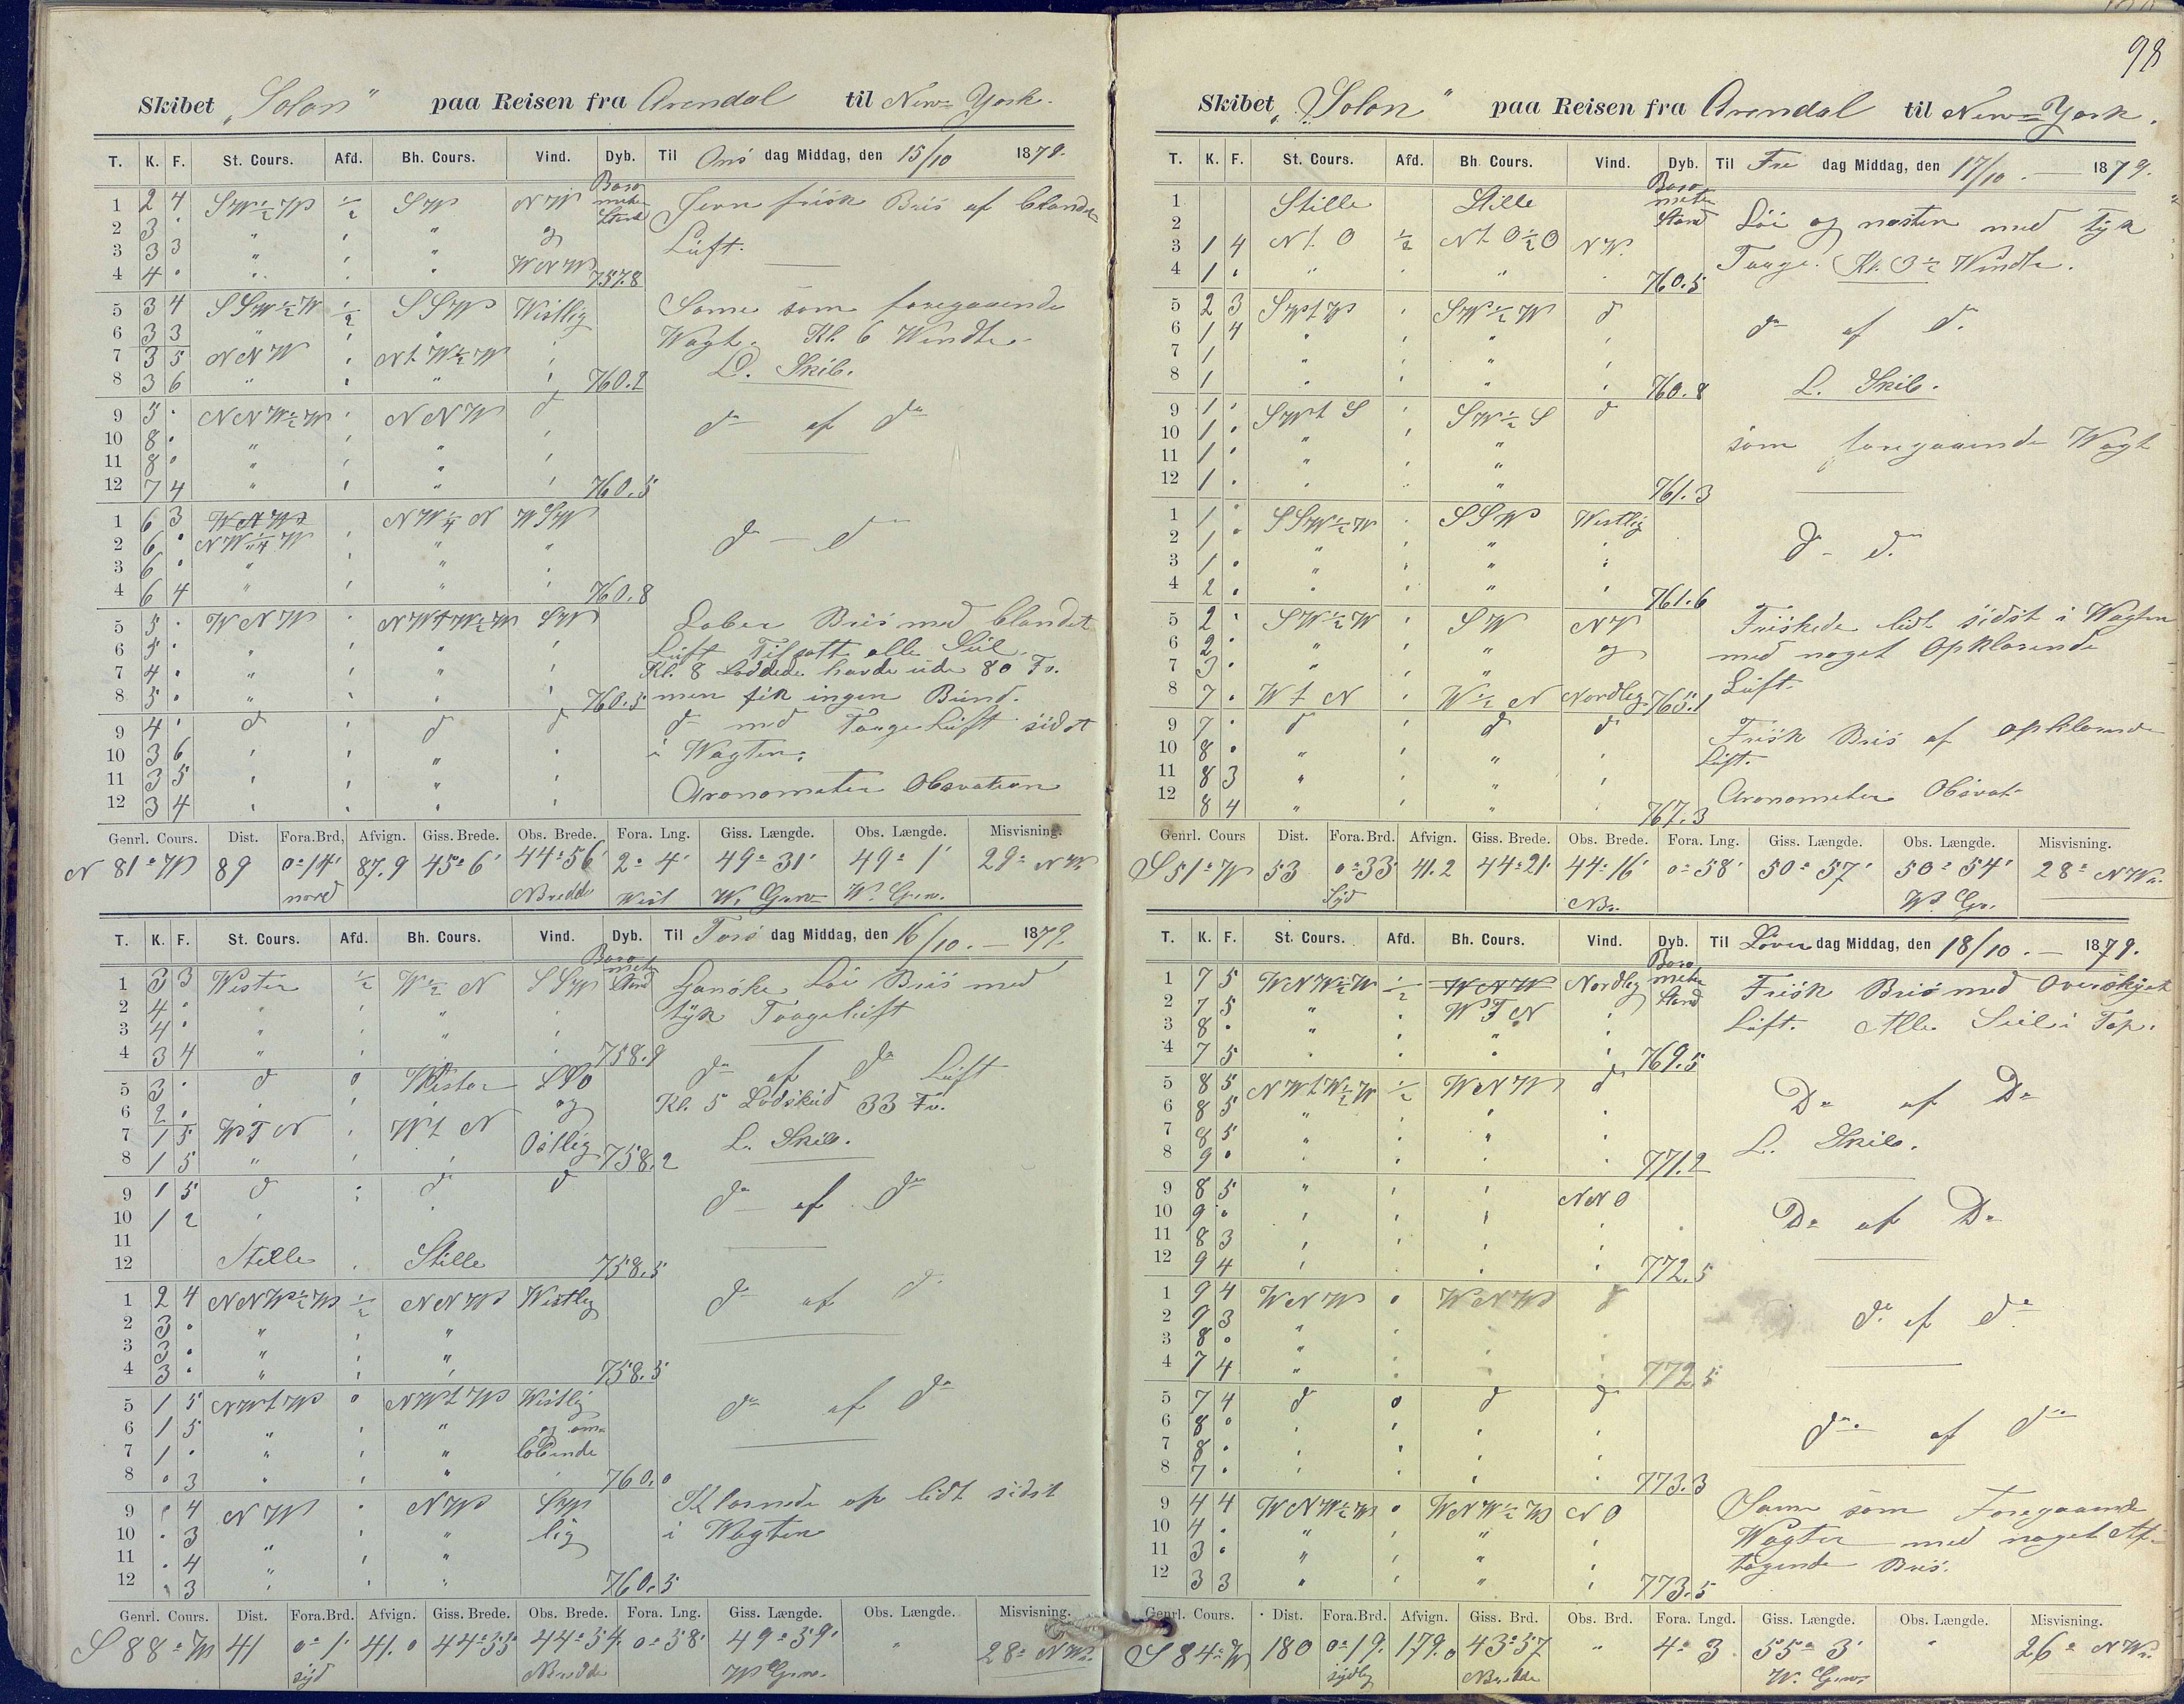 98
Skibet „Solon“ paa Reisen fra Arendal til New-York.
T. K. F. St. Cours. Afd. Bh. Cours. Vind. Dyb. Til Ons dag Middag, den 15/10 1879.
Barometer Stand
1 2 4 SW½W ½ SW NW Jevn frisk Bris af blandet
2 3 . " " " og Luft.
3 3 3 " " "
4 4 . " " " WNW 757.8
5 3 4 SSW½W ½ SSW Westlig Samme som foregaaende
6 3 3 " " " " Wagt. Kl. 6 Wendte.
7 3 5 NNW " NtW½W " L. Skib.
8 3 6 " " " " 760.2
9 5 . NNW½W " NNW d d- af do
10 8 . " " " "
11 8 . " " " "
12 7 4 " " " " 760.5
1 6 3 WNW " NW¼N WSW
2 6 . NW¼W " " " d- d-
3 6 . " " " "
4 6 4 " " " " 760.8
5 5 . WNW " NWtW½W SW Laber Bris med blandet
6 5 . " " " " Luft Tilsatt alle Seil.
7 4 . " " " " Kl. 8 Loddede havde ude 80 Fv.
8 5 . " " " " 760.5 men fik ingen Bund.
9 4 . d " d d d- med Taage Luft sidst
10 3 6 " " " " i Wagten.
11 3 5 " " " "
12 3 4 " " " " Cronometer Obsvation
Genrl. Cours. Dist. Fora.Brd. Afvign. Giss. Brede. Obs. Brede. Fora. Lng. Giss. Længde. Obs. Længde. Misvisning.
N 81° W 89 0°14' 87.9 45°6' 44°56' 2°4' 49°31' 49°1' 29° NW.
nord Bredde West W. Grw. W. Grw.
T. K. F. St. Cours. Afd. Bh. Cours. Vind. Dyb. Til Tors dag Middag, den 16/10. 1879.
Barometer Stand
1 3 3 Wester ½ W½N SSW Ganske Löi Bris med
2 4 . " " " " tyk Taageluft
3 4 . " " " "
4 3 4 " " " " 758.9
5 3 . d 0 Wester SSO d- af do Luft
6 2 . " " " og Kl. 5 Lodskud 33 Fv.
7 1 5 WtN " WtN Ostlig L. Skib.
8 1 5 " " " 758.2
9 1 5 d " d d d- af do
10 1 2 " "
11
12 Stille " Stille 758.5
1 2 4 NNW½W ½ NNW Westlig d- af d-
2 3 . " " "
3 3 . " " "
4 3 . " " " 758.5
5 1 5 NWtW 0 NWtW Westlig d- af do
6 1 5 " " " og om-
7 1 . " " " löbende
8 . 3 " " " 760.0
9 . 4 NW " NW Syd Klarnede op lidt sidst
10 . 3 " " " lig i Wagten
11 . 4 " " "
12 . 3 " " " 760.5
Genrl. Cours. Dist. Fora.Brd. Afvign. Giss. Brede. Obs. Brede. Fora. Lng. Giss. Længde. Obs. Længde. Misvisning.
S 88° W 41 0°1' 41.0 44°55' 44°54' 0°58' 49°59' " 28° NW.
syd Bredde W Grw.
Skibet „Solon“ paa Reisen fra Arendal til New-York.
T. K. F. St. Cours. Afd. Bh. Cours. Vind. Dyb. Til Fre dag Middag, den 17/10. 1879.
Barometer Stand
1 Stille Stille Löi og næsten med tyk
2 Taage. Kl. 3½ Wendte.
3 1 4 NtO ½ NtO½O NW.
4 1 . " " " " 760.5
5 2 3 SWtW " SW½W d d- af d-
6 1 4 " " " "
7 1 " " " " L. Skib.
8 1 " " " " 760.8
9 1 . SWtS " SW½S d
10 1 . " " " som foregaaende Wagt
11 1 . " " "
12 1 . " " " 761.3
1 1 . SSW½W " SSW Westlig
2 1 . " " " " d- d-
3 1 . " " " "
4 2 . " " " " 761.6
5 2 . SW½W " SW NW Friskede lidt sidst i Wagten
6 2 . " " " og med noget Opklarende
7 3 . " " " Luft.
8 7 . WtN " W½N Nordleg 765.1
9 7 . d " d d Frisk Bris af opklarende
10 8 . " " " " Luft.
11 8 3 " " " "
12 8 4 " " " " 767.3 Cronometer Obsvat-
Genrl. Cours Dist. Fora.Brd. Afvign. Giss. Brede. Obs. Brede. Fora. Lng. Giss. Længde. Obs. Længde. Misvisning.
S 51° W 53 0°33' 41.2 44°21' 44°16' 0°58' 50°57' 50°54' 28° NW.
Syd Br. W. Gr.
T. K. F. St. Cours. Afd. Bh. Cours. Vind. Dyb. Til Löver dag Middag, den 18/10. 1879.
Barometer Stand
1 7 5 WNW½W ½ WNW Nordleg Frisk Bris med Overskyet
2 7 5 " " WtN " Luft. Alle Seil i Top.
3 8 . " " " "
4 7 5 " " " " 769.5
5 8 5 NWtW½W ½ WNW d Do af Do
6 8 5 " " " "
7 8 5 " " " " L. Skib.
8 9 . " " " " 771.2
9 8 5 " " " NNO
10 9 . " " " " Do af Do
11 8 3 " " " "
12 9 4 " " " " 772.5
1 9 4 WNW 0 WNW d
2 9 3 " " " " do af do
3 8 . " " " "
4 7 4 " " " " 772.5
5 7 4 d 0 d d
6 8 . " " " " do af do
7 8 . " " " "
8 7 . " " " " 773.3
9 4 4 WNW½W 0 WNW½W NO Samme som Foregaaende
10 4 . " " " " Wagter med noget Af-
11 3 . " " " " tagende Bris.
12 3 3 " " " " 773.5
Genrl. Cours. Dist. Fora.Brd. Afvign. Giss. Brd. Obs. Brd. Fora. Lngd. Giss. Længde. Obs. Længde. Misvisning.
S 84° W 180 0°19' 179.0 43°57 " 4°3 55°3' " 26° NW.
sydlig Bredde W. Grw.